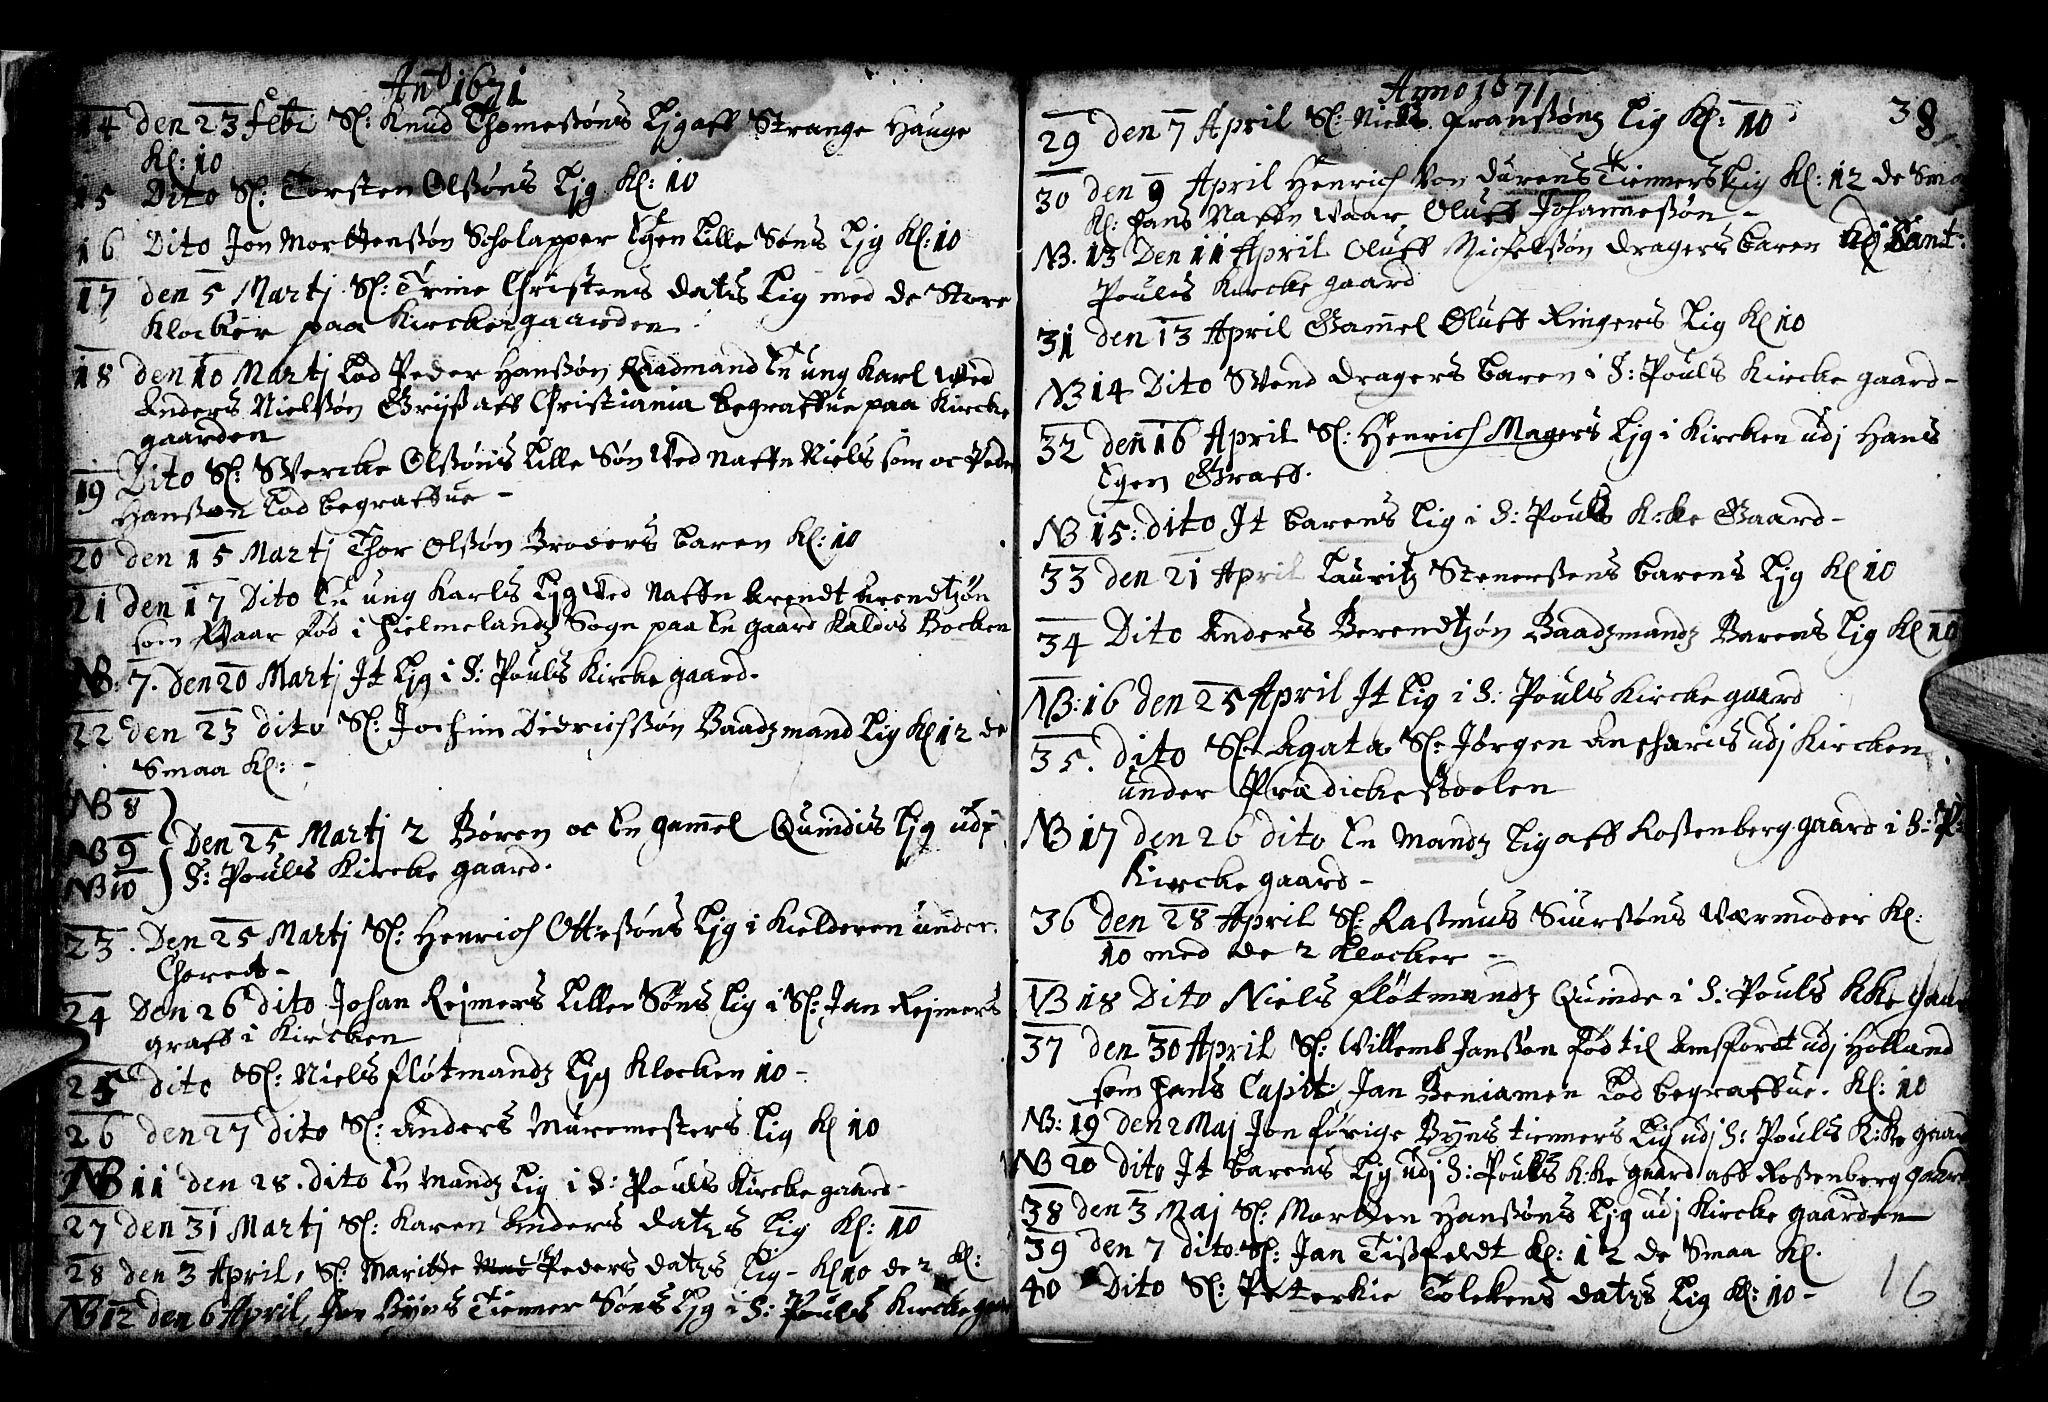 Anno 1671
14 den 23 febr Sl: Knud Thomeßøns Ljg aff Strange Hauge
Kl: 10
15 Dito Sl: Torsten Olßøns Ljg Kl: 10
16 Dito Jon Morttenßøn Scholapper Egen Lille Søns Ljg Kl: 10
17 den 5 Martj Sl: Trine Christens datrs Lig med de Store
Klocker paa Kirckegaarden
18 den 10 Martj Lod Peder Hanßøn Raadmand En ung Karl Ved
Anders Nielßøn Grijß aff Christiania begraffue paa Kircke
gaarden
19 Dito Sl: Svercke Olßøns Lille Søn Ved Naffn Niels som oc Peder
Hanßøn Lod begraffue -
20 den 15 Martj Thor Olßøn Broders baren Kl: 10
21 den 17 Dito En ung Karls Ljg Ved Naffn Arendt Arendtzøn
som Waar fød i Hielmelandz Sogn paa En gaard Kaldis Bocken
NB: 7. den 20 Martj It Ljg i S: Pouls Kircke gaard.
22 den 23 dito Sl: Jochim Didrichßøn Baadzmand Lig Kl 12 de
Smaa Kl: -
NB 8
NB 9 Den 25 Martj 2 Børen oc En gammel Quindis Ljg udj
NB 10 S: Pouls Kircke gaard.
23. Den 25 Martj Sl: Henrich Otteßøns Ljg i Kielderen under
Choret -
24 Den 26 dito Johan Rejmers Lille Søns Lig i Sl: Jan Rejmers
graff i Kircken
25 dito Sl: Niels fløtmandz Ljg Klocken 10 -
26 den 27 dito Sl: Anders Muremesters Lig Kl 10
NB 11 den 28. dito En Mandz Lig i S: Pouls Kircke gaard -
27 den 31 Martj Sl: Karen Anders datrs Lig Kl: 10
28 den 3 April, Sl: Maritte Peders datrs Lig - Kl 10 de 2 Kl:
NB 12 den 6 April, Jon Byns Tienner Søns Ljg i S: Pouls Kircke gaard
Anno 1671
38
29 den 7 April Sl: Niels Franßønz Lig Kl: 10
30 den 9 April Henrich Von Durens Tienners Lig Kl: 12 de Smaa
Kl: Hans Naffn Waar Oluff Johanneßøn -
NB. 13 Den 11 April Oluff Michelßøn Dragers baren udj Sant:
Poules Kircke gaard
31 den 13 April Gammel Oluff Ringers Lig Kl 10
NB 14 Dito Svend Dragers baren i S: Pouls Kircke gaard -
32 den 16 April Sl: Henrich Magers Ljg i Kircken udj Hans
Egen Graff.
NB 15: dito It barens Lig i S: Pouls K:ke Gaard -
33 den 21 April Lauritz Stenerßens barens Ljg Kl 10
34 Dito Anders Berendtzøn Baadzmandz Barens Lig Kl 10
NB: 16 den 25 April It Lig i S: Pouls Kircke gaard
35. dito Sl: Agata Sl: Jørgen Ancharis udj Kircken
under Prædickestoelen
NB 17 den 26 dito En Mandz Lig aff Roßenberg gaard i S: P:
Kircke gaard -
36 den 28 April Sl: Raßmus SiurßønsVærmoder Kl:
10 med de 2 Klocker -
NB 18 Dito Niels fløtmandz Quinde i S: Pouls Kke gaard
37 den 30 April Sl: Willemb Janßøn fød til Amsfordt udj Holland
som hans Capit: Jan Beniamen Lod begraffue. Kl: 10
NB: 19 den 2 Maj Jon førige Byns tienners Lig udj S: Pouls K:ke gaard
NB 20 dito It barens Ljg udj S: Pouls K:ke gaard aff Roßenberg gaard
38 den 3 Maj Sl: Mortten Hanßøns Ljg udj Kircke gaarden
39 den 7 dito Sl: Jan Tißfeldt Kl: 12 de Smaa Kl.
40 Dito Sl: Peterkie Tølekens datrs Lig Kl: 10 -
16